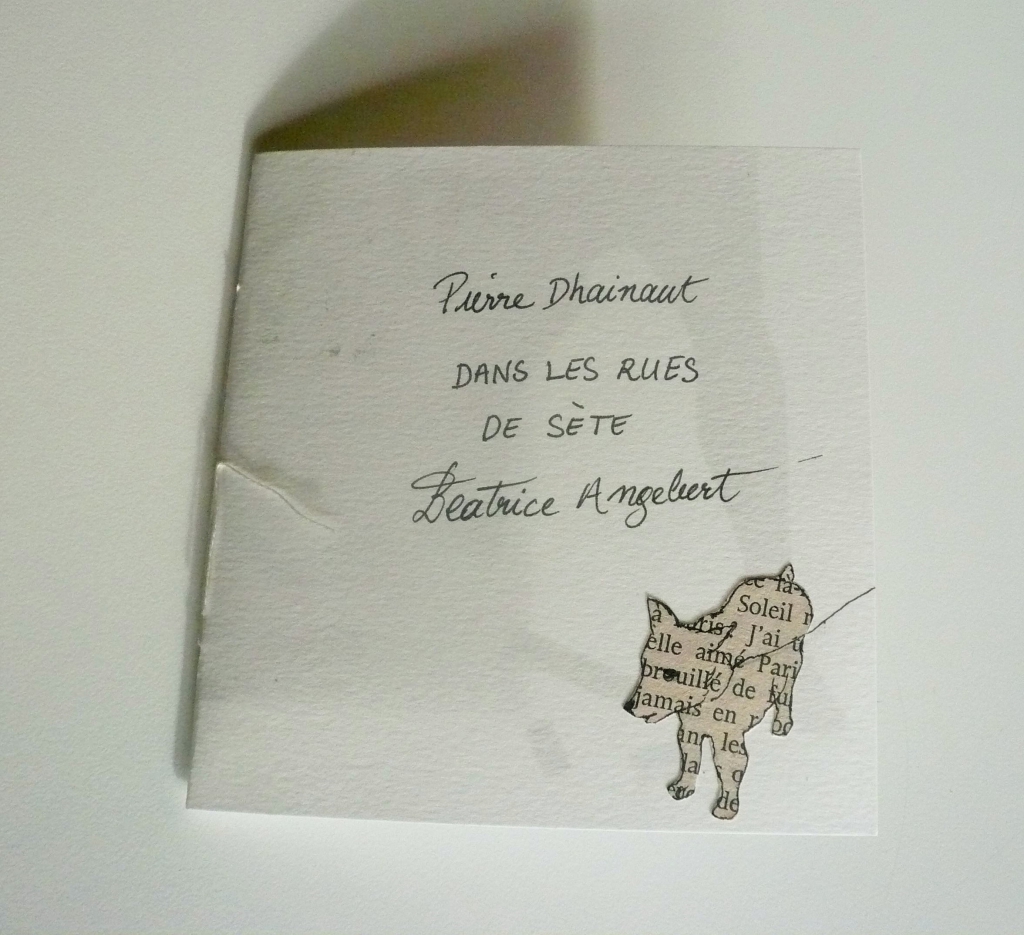 Pierre Dhainaut
DANS LES RUES
DE SÈTE
Beatrice Angebert
ce là-
Soleil
à Paris. J'ai
elle aimé Pari
brouillé de fu
jamais en
an les
la
de